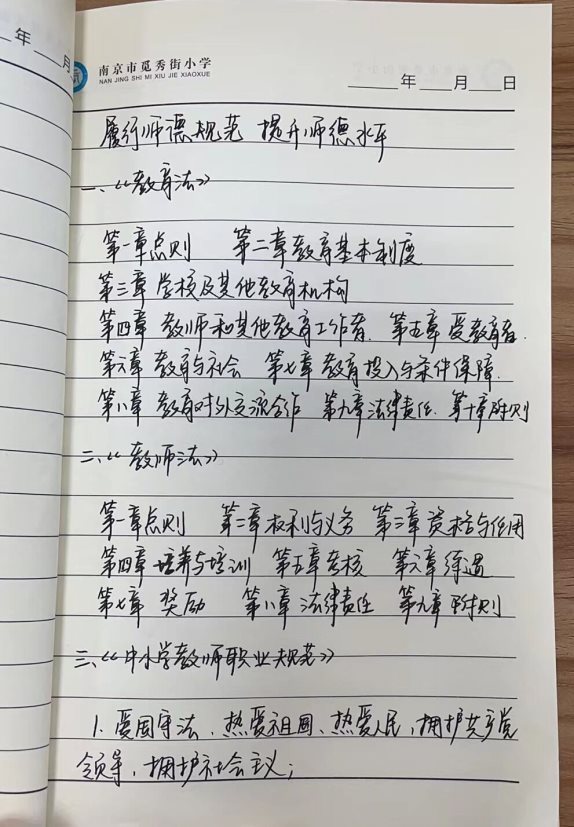 年
月
南京市觅秀街小学
NAN JING SHI MI XIU JIE XIAOXUE
年 月 日
履行师德规范 提升师德水平
一、《教育法》
第一章点则 第二章教育基本制度
第三章 学校及其他教育机构
第四章 教师和其他教育工作者. 第五章 受教育者.
第六章 教育与社会 第七章 教育投入与条件保障.
第八章 教育对外交流合作 第九章法律责任. 第十章附则
二、《教师法》
第一章点则 第二章权利与义务 第三章 资格与任用
第四章 培养与培训 第五章考核 第六章 待遇
第七章 奖励 第八章 法律责任 第九章 附则
三、《中小学教师职业规范》
1. 爱国守法、热爱祖国、热爱人民，拥护共产党
领导，拥护社会主义；